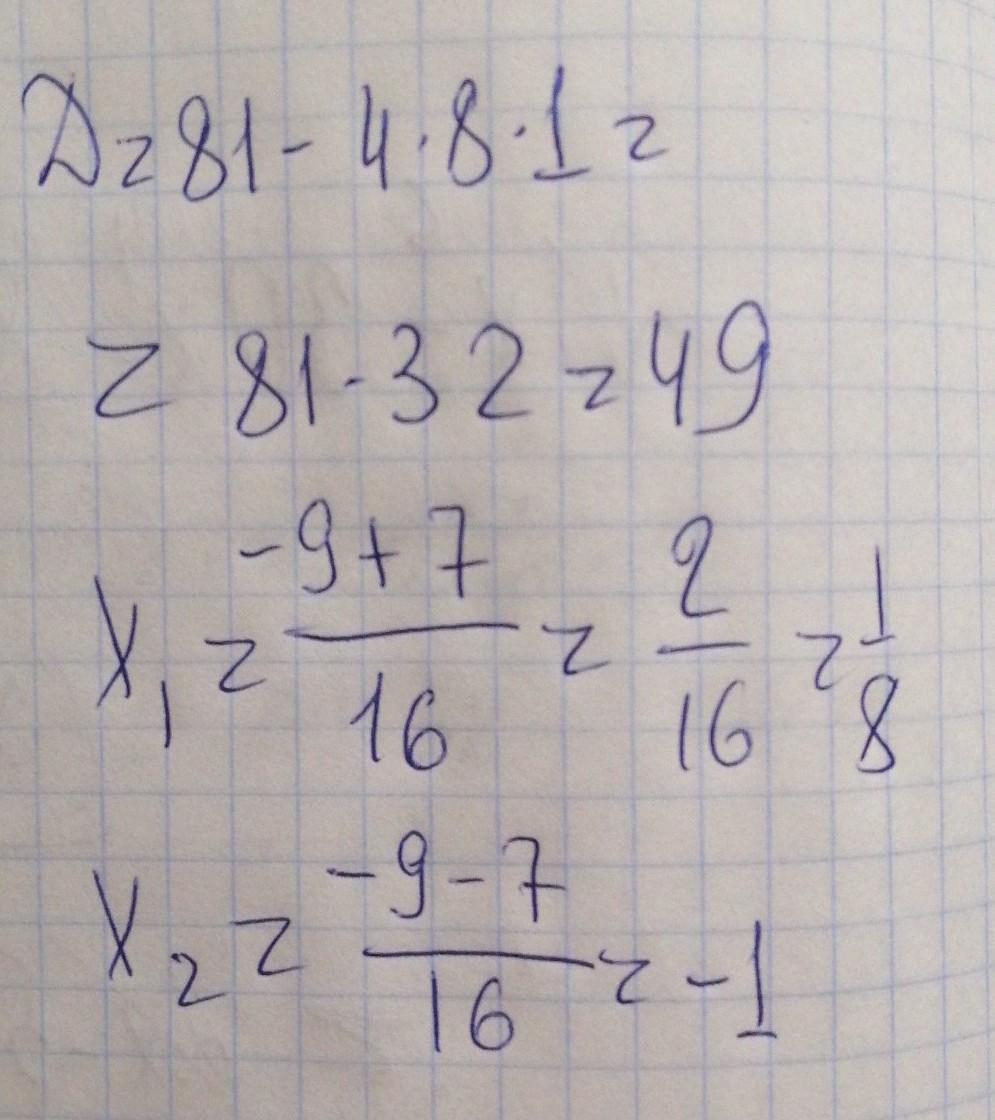 D=81-4·8·1=
= 81-32=49
X₁ = (-9+7)/16 = 2/16 = 1/8
X₂ = (-9-7)/16 = -1